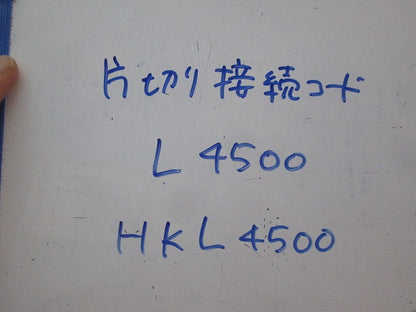 片切り接続コード
L 4500
HKL 4500